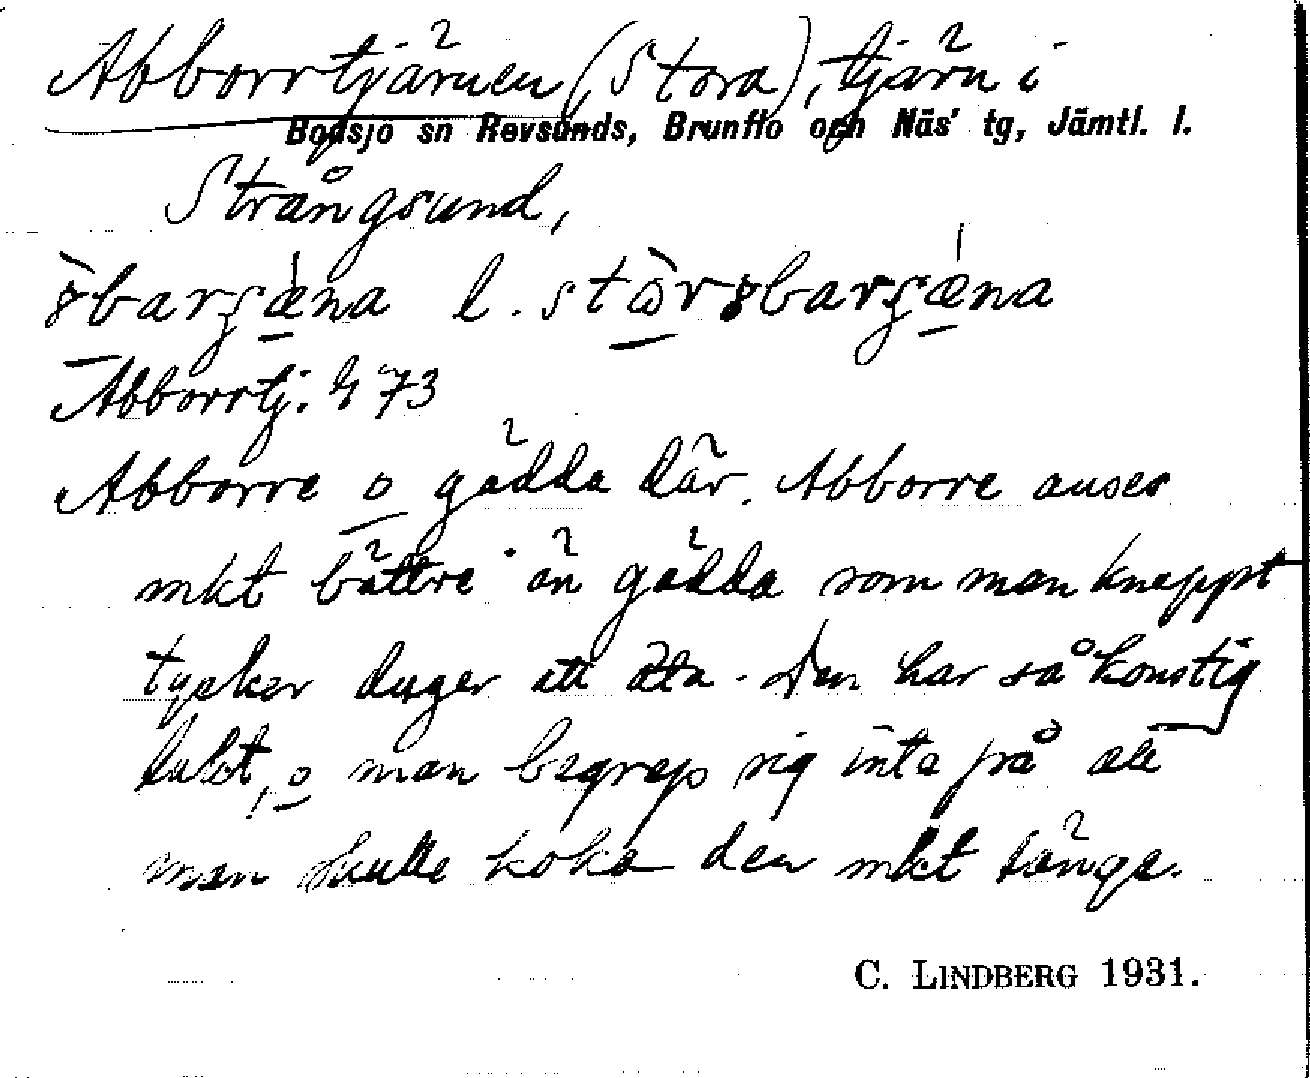 Abborrtjärnen (Stora), tjärn i
Bodsjö sn Revsunds, Brunflo och Näs' tg, Jämtl. l.
Strångsund,
l.
Abborrtj. 73
Abborre o gädda där. Abborre anses
mkt bättre än gädda som man knappt
tycker duger att äta. Den har så konstig
lukt, o man begrep sig inte på att
man skulle koka den mkt länge.
C. LINDBERG 1931.